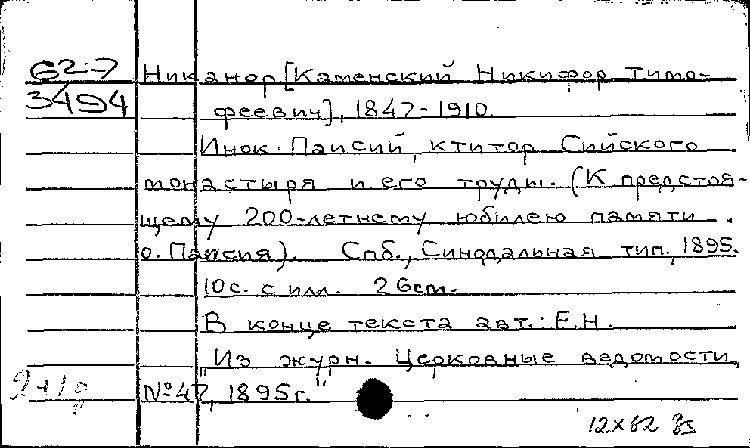 62-7
3494
Никанор [Каменский Никифор Тимо-
феевич], 1847-1910.
Инок Паисий, ктитор Сийского
монастыря и его труды. (К предстоя-
щему 200-летнему юбилею памяти
о. Паисия). Спб., Синодальная тип., 1895.
10с. с илл. 26cm.
В конце текста авт.: Е.Н.
"Из журн. Церковные ведомости,
№47, 1895г."
12х62